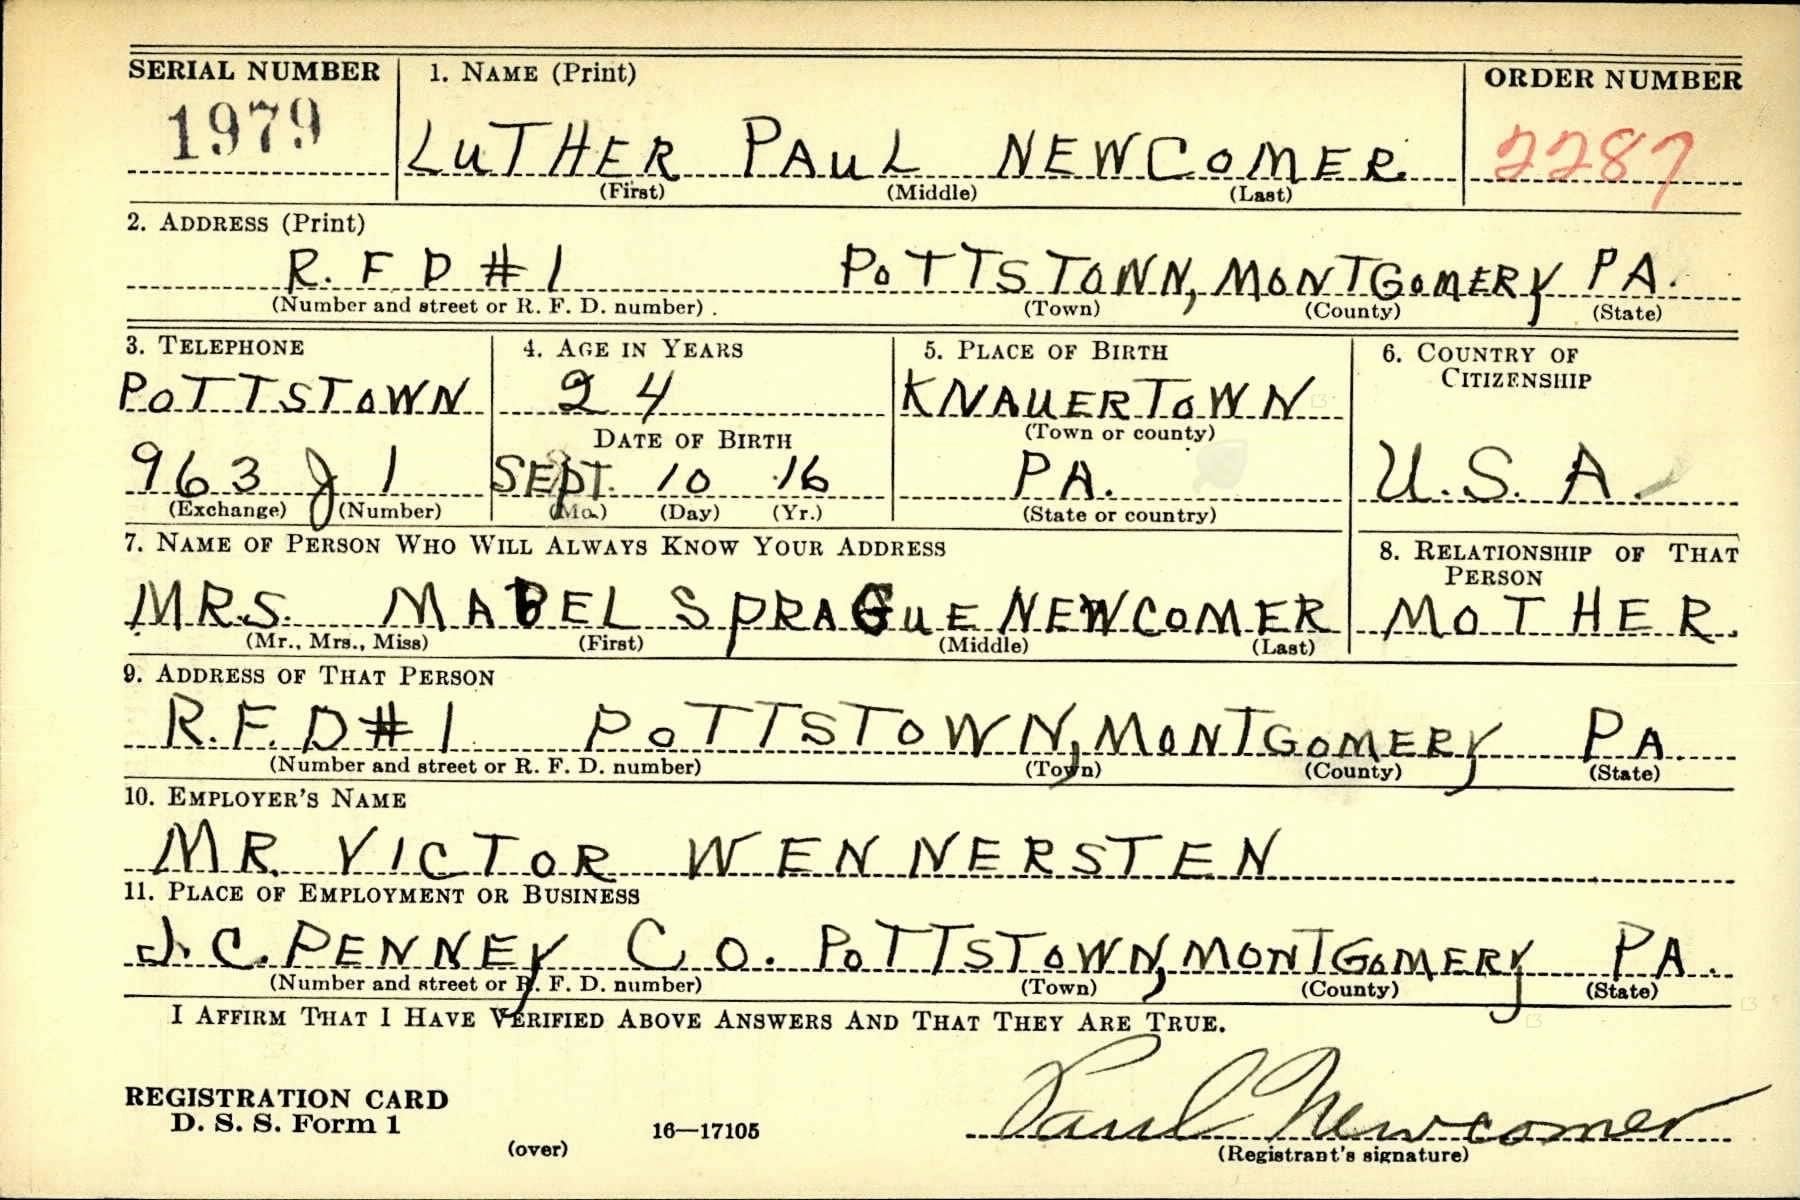 SERIAL NUMBER 1. NAME (Print) ORDER NUMBER
1979 LUTHER PAUL NEWCOMER 2287
(First) (Middle) (Last)
2. ADDRESS (Print)
R. F D # 1 POTTSTOWN, MONTGOMERY PA.
(Number and street or R. F. D. number) (Town) (County) (State)
3. TELEPHONE 4. AGE IN YEARS 5. PLACE OF BIRTH 6. COUNTRY OF CITIZENSHIP
POTTSTOWN 24 KNAUERTOWN
DATE OF BIRTH (Town or county)
963 J 1 SEPT. 10 16 PA. U.S.A.
(Exchange) (Number) (Mo.) (Day) (Yr.) (State or country)
7. NAME OF PERSON WHO WILL ALWAYS KNOW YOUR ADDRESS 8. RELATIONSHIP OF THAT PERSON
MRS. MABEL SPRAGUE NEWCOMER MOTHER.
(Mr., Mrs., Miss) (First) (Middle) (Last)
9. ADDRESS OF THAT PERSON
R.F.D # 1 POTTSTOWN, MONTGOMERY PA.
(Number and street or R. F. D. number) (Town) (County) (State)
10. EMPLOYER'S NAME
MR. VICTOR WENNERSTEN
11. PLACE OF EMPLOYMENT OR BUSINESS
J.C. PENNEY CO. POTTSTOWN, MONTGOMERY PA.
(Number and street or R. F. D. number) (Town) (County) (State)
I AFFIRM THAT I HAVE VERIFIED ABOVE ANSWERS AND THAT THEY ARE TRUE.
REGISTRATION CARD
D. S. S. Form 1
(over) 16—17105 Paul Newcomer
(Registrant's signature)